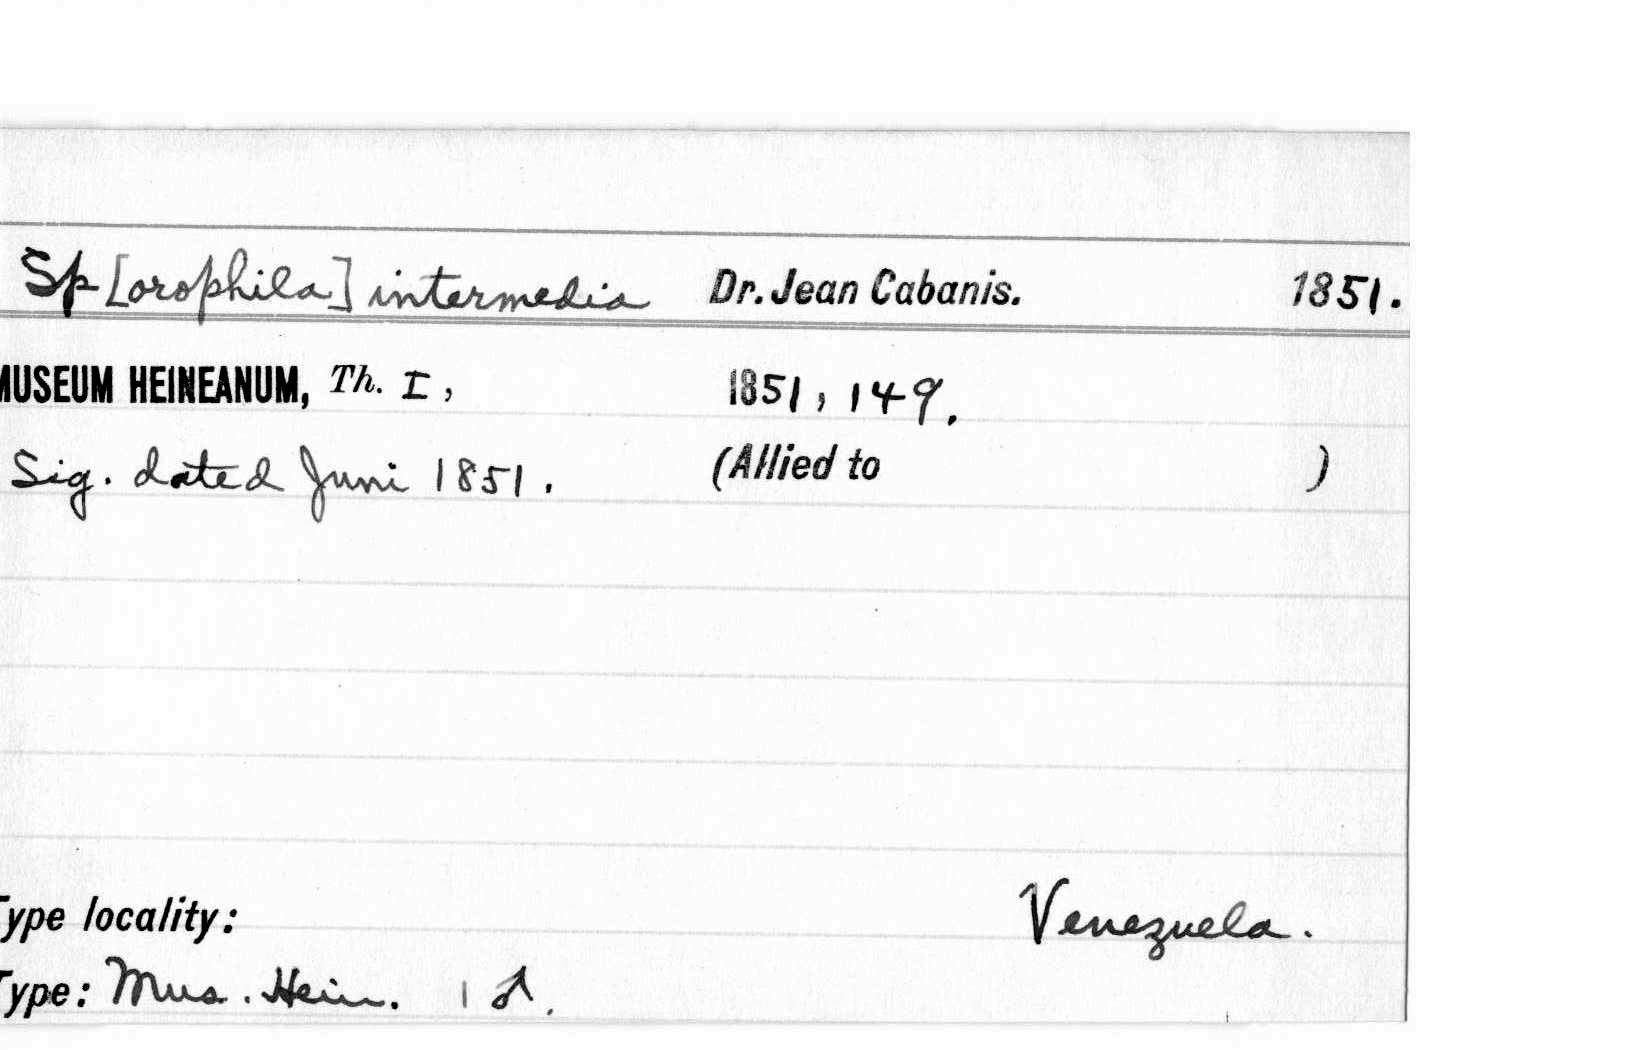 Sp[orophila] intermedia Dr. Jean Cabanis. 1851.
MUSEUM HEINEANUM, Th. I, 1851, 149.
Sig. dated Juni 1851. (Allied to )
Type locality: Venezuela.
Type: Mus. Hein. 1 ♂.